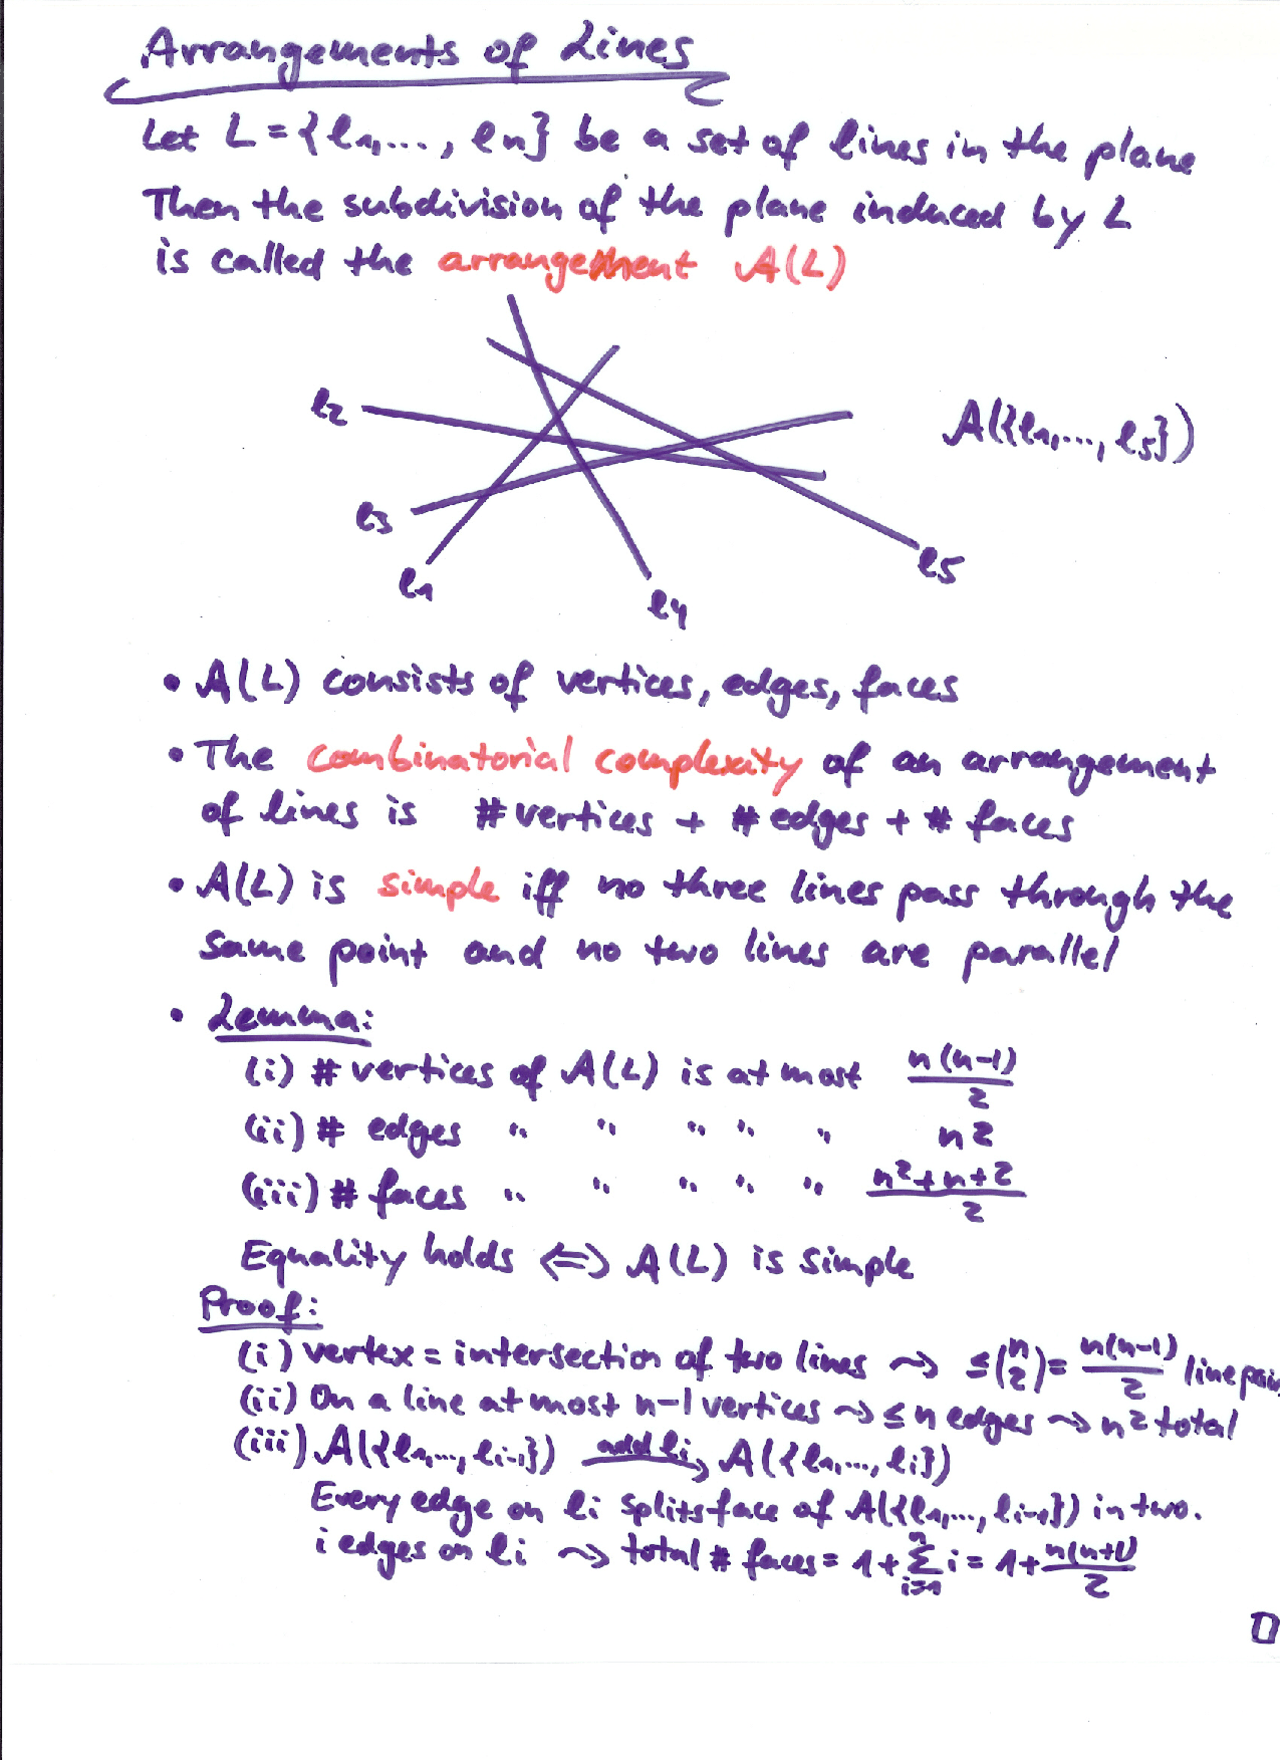 Arrangements of Lines
Let L = {l1,..., ln} be a set of lines in the plane
Then the subdivision of the plane induced by L
is called the arrangement A(L)
l2
A({l1,..., l5})
l3
l1
l4
l5
• A(L) consists of vertices, edges, faces
• The combinatorial complexity of an arrangement
of lines is # vertices + # edges + # faces
• A(L) is simple iff no three lines pass through the
same point and no two lines are parallel
• Lemma:
(i) # vertices of A(L) is at most n(n-1)/2
(ii) # edges " " " " " n²
(iii) # faces " " " " " n²+n+2/2
Equality holds ⇔ A(L) is simple
Proof:
(i) vertex = intersection of two lines ⇝ ≤ (n 2) = n(n-1)/2 line pairs
(ii) On a line at most n-1 vertices ⇝ ≤ n edges ⇝ n² total
(iii) A({l1,..., li-1}) add li → A({l1,..., li})
Every edge on li splits face of A({l1,..., li-1}) in two.
i edges on li ⇝ total # faces = 1 + Σ i=1 n i = 1 + n(n+1)/2
□